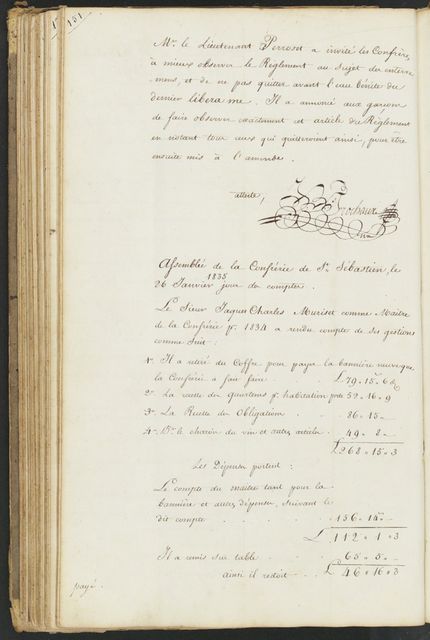 131
Mr. le Lieutenant Perroset a invité les Confrères
à mieux observer le Réglement au Sujet des enterre
mens, et de ne pas quitter avant l'eau bénite du
dernier libera me. Il a annoncé aux garçons
de faire observer exactement cet article du Réglement
en notant tous ceux qui quitteroient ainsi, pour être
ensuite mis à l'amende.
atteste,
Frochaux
Assemblée de la Confrérie de St. Sébastien, le
26 Janvier 1835 jour des comptes.
Le Sieur Jaques Charles Muriset comme Maitre
de la Confrérie pr. 1834 a rendu compte de Ses gestions
comme Suit:
1o. Il a retiré du Coffre pour payer la bannière neuve que
la Confrérie a fait faire . . L 79 " 15 " 6
2o. La recette des pr. habitation 52 " 16 " 9
3o. La Recette des Obligations . . 86 " 15 "
4o. le charoi du vin et autres articles . 49 " 8 "
L 268 " 15 " 3
Les Dépenses portent :
Le compte du maitre tant pour la
bannière et autres dépenses, suivant le
dit compte . . . . 156 " 14 "
L 112 " 1 " 3
Il a remis sur table . . . 65 " 5 "
payé. ainsi il redoit L 46 " 16 " 3